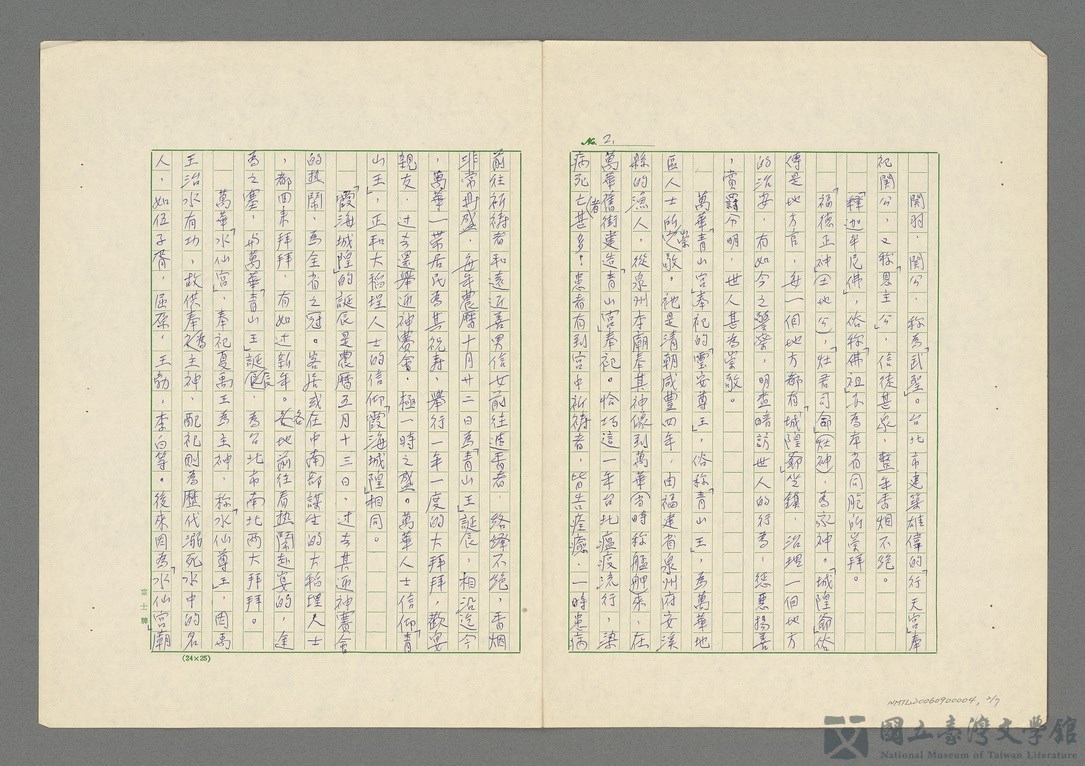 No. 2.
關羽,關公,称為武聖。台北市建築雄偉的「行天宮」奉
祀関公,又称「恩主公」,信徒甚众,整年香烟不絕。
「釋迦牟尼佛」,俗称「佛祖」,亦為本省同胞所崇拜。
「福德正神」(土地公),「灶君司命」(灶神),為家神。「城隍爺」俗
傳是地方官,每一個地方都有「城隍爺」坐鎮,治理一個地方
的治安,有如今之警察,明查暗訪世人的行為,惩惡揚善
,賞罰分明,世人甚為崇敬。
萬華「青山宮」奉祀的「靈安尊王」,俗称「青山王」,為萬華地
區人士所崇敬,祂是清朝咸豐四年,由福建省泉州府安溪
縣的漁人,從泉州本廟奉其神像到萬華(當時称艋舺)來,在
萬華舊街建造「青山宮」奉祀。恰巧這一年台北瘟疫流行,染
病死亡者甚多,患者有到宮中祈禱者,皆告痊癒,一時患病
前往祈禱者和遠近善男信女前往進香者,络绎不絕,香烟
非常興盛,每年農曆十月廿二日為「青山王」誕辰,相沿迄今
,萬華一帶居民為其祝寿,舉行一年一度的大拜拜,歡宴
親友,过去還舉迎神賽會,極一時之盛。萬華人士信仰「青
山王」,正和大稻埕人士的信仰「霞海城隍」相同。
「霞海城隍」的誕辰是農曆五月十三日,过去其迎神賽會
的熱鬧,為全省之冠。客居或在中南部謀生的大稻埕人士
,都回來拜拜,有如过新年。各地前往看热鬧赴宴的,途
為之塞,与萬華「青山王」誕辰,為台北市南北两大拜拜。
萬華「水仙宮」,奉祀夏禹王為主神,称「水仙尊王」,因禹
王治水有功,故供奉為主神,配祀則為歷代溺死水中的名
人,如伍子胥,屈原,王勃,李白等。後來因為「水仙宮」廟
(24×25)
NMTL20060900004, 2/7
國立臺灣文學館
National Museum of Taiwan Literature